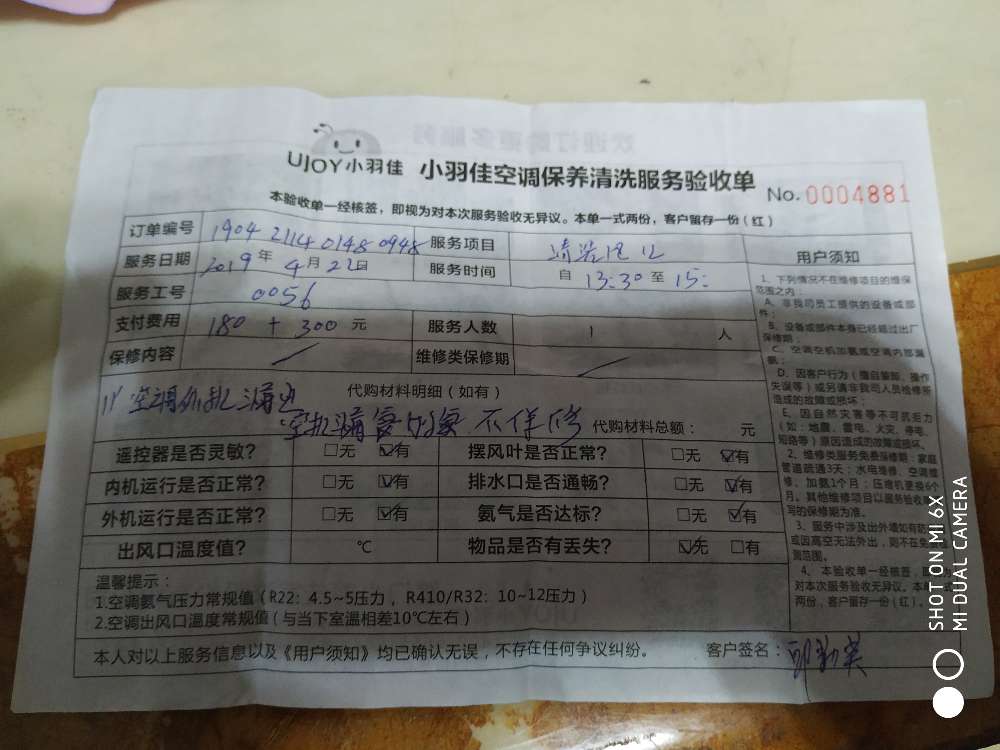 UJOY小羽佳 小羽佳空调保养清洗服务验收单 No.0004881
本验收单一经核签，即视为对本次服务验收无异议。本单一式两份，客户留存一份（红）
订单编号 1904 2114 0148 0948 服务项目
服务日期 2019年4月22日 服务时间 自13:30至15:
服务工号 0056
支付费用 180+300元 服务人数 1人
保修内容 / 维修类保修期 /
代购材料明细（如有）
空调外机漏
不保修 代购材料总额： 元
遥控器是否灵敏？ □无 ☑有 摆风叶是否正常？ □无 ☑有
内机运行是否正常？ □无 ☑有 排水口是否通畅？ □无 ☑有
外机运行是否正常？ □无 ☑有 氨气是否达标？ □无 ☑有
出风口温度值？ ℃ 物品是否有丢失？ ☑无 □有
温馨提示：
1.空调氨气压力常规值（R22：4.5~5压力，R410/R32：10~12压力）
2.空调出风口温度常规值（与当下室温相差10℃左右）
本人对以上服务信息以及《用户须知》均已确认无误，不存在任何争议纠纷。 客户签名：
用户须知
1、下列情况不在维修项目的维保
范围之内：
A、非我司员工提供的设备或部
件；
B、设备或部件本身已经超过出厂
保修期；
C、空调空机加氨或空调内部漏
氨；
D、因客户行为（擅自拆卸、操作
失误等）或另请非我司人员检修所
造成的故障或损坏；
E、因自然灾害等不可抗拒力
（如：地震、雷电、火灾、停电、
短路等）原因造成的故障或损坏。
2、维修类服务免费保修期：家庭
管道疏通3天；水电维修、空调维
修、加氨1个月；压缩机更换6个
月。其他维修项目以服务验收
写的保修期为准。
3、服务中涉及出外墙如有防
或因高空无法外出，则不在
测范围。
4、本验收单一经核签，
对本次服务验收无异议。本
两份，客户留存一份（红）。
SHOT ON MI 6X
MI DUAL CAMERA